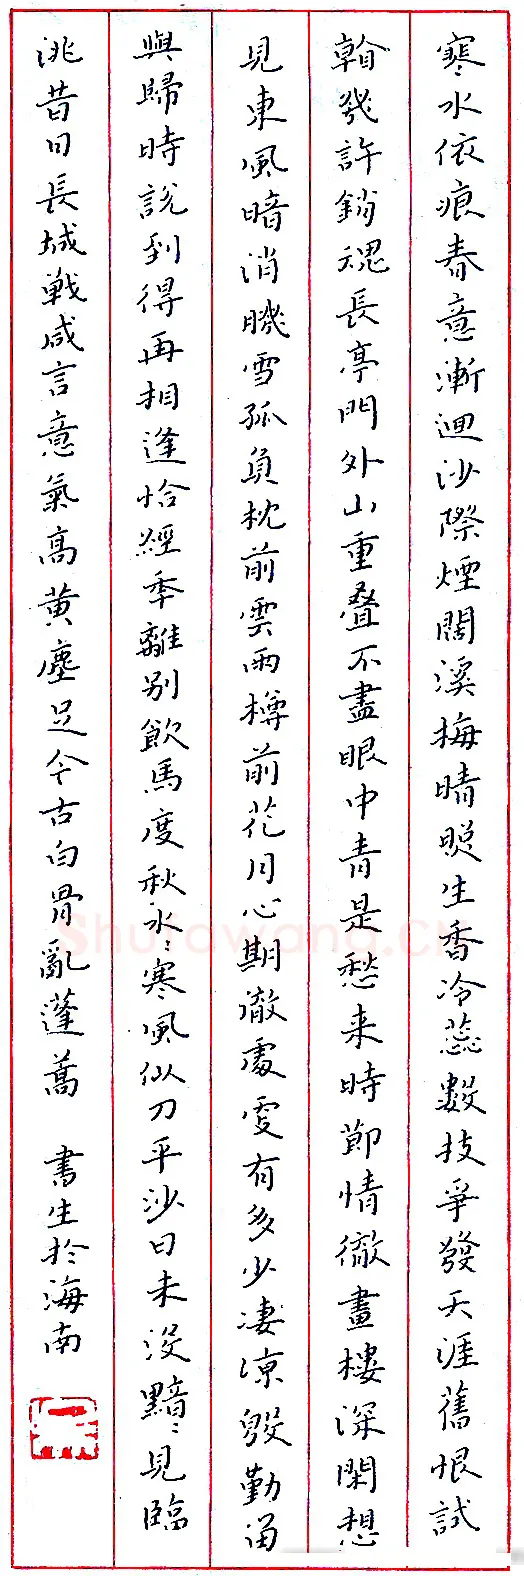 寒水依痕春意漸迴沙際煙闊溪梅晴照生香冷蕊數枝爭發天涯舊恨試
看幾許銷魂長亭門外山重疊不盡眼中青是愁來時節情徹畫樓深閑想
見東風暗消肌雪孤負枕前雲雨樽前花月心期徹處更有多少凄涼殷勤留
與歸時說到得再相逢恰經年離別飲馬度秋水〻寒風似刀平沙日未沒黯〻見臨
洮昔日長城戰咸言意氣高黃塵足今古白骨亂蓬蒿 書生於海南
Shufawang.CN